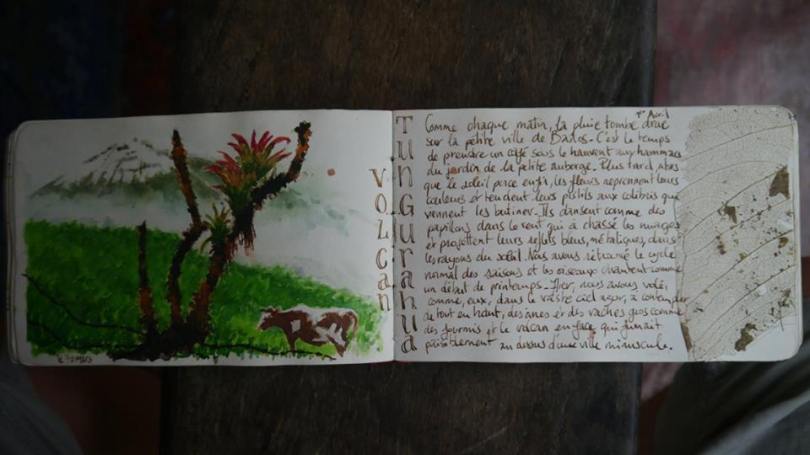 VOLCan
TUnGUrahUa
1er Avril
Comme chaque matin, la pluie tombe drue
sur la petite ville de Baños. C'est le temps
de prendre un café sous le hauvent aux hammacs
du jardin de la petite auberge. Plus tard, alors
que le soleil perce enfin, les fleurs reprennent leurs
couleurs et tendent leurs pistils aux colibris qui
viennent les butiner. Ils dansent comme des
papillons dans le vent qui a chassé les nuages
et projettent leurs reflets bleus, métaliques, dans
les rayons du soleil. Nous avons retrouvé le cycle
normal des saisons et les oiseaux chantent comme
un début de printemps. Hier, nous avons volé,
comme eux, dans le vaste ciel azur, à contempler
de tout en haut, des ânes et des vaches gros comme
des fourmis et le volcan en face qui fumait
paisiblement au dessus d'une ville minuscule.